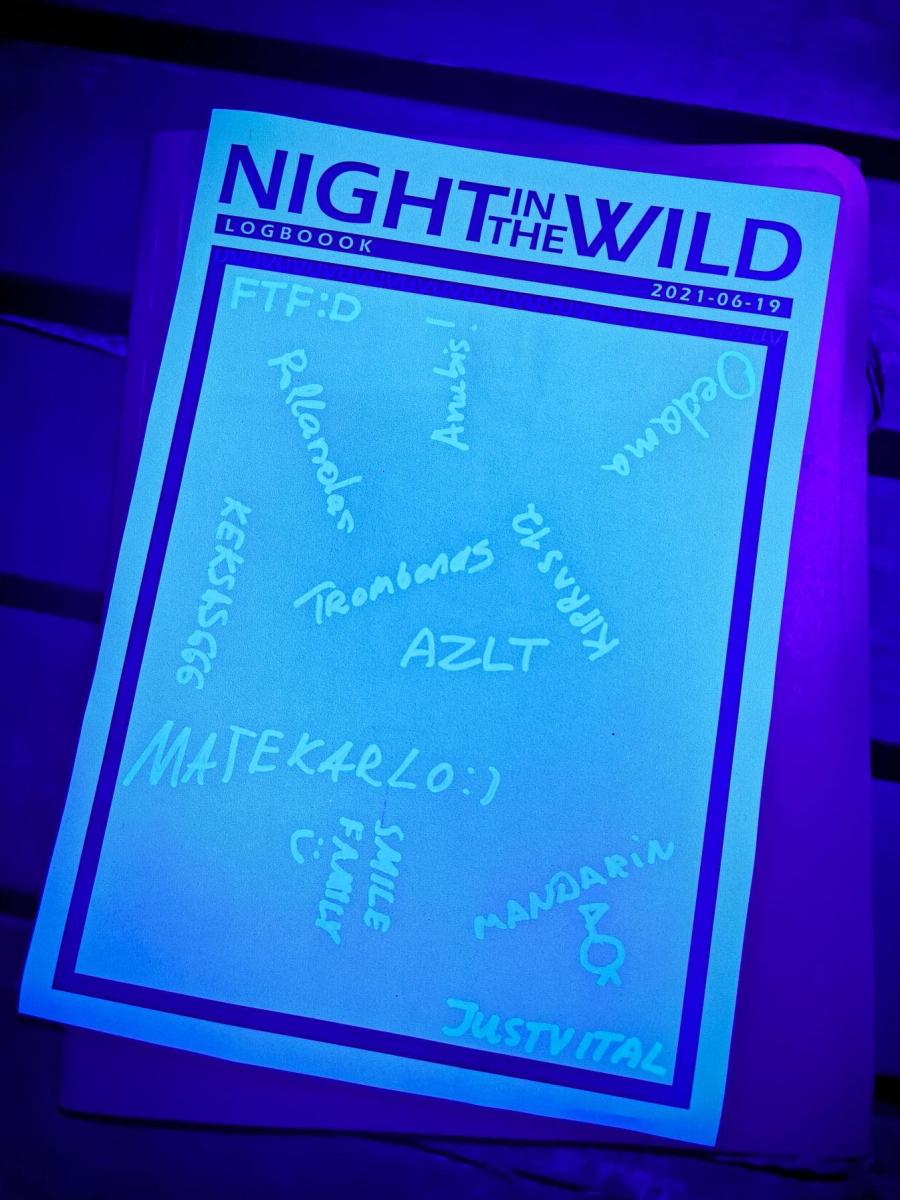 NIGHT IN THE WILD
LOGBOOOK
2021-06-19
FTF:D
Anubis1
Oedama
KEKSIS666
Trombonas
KIPPARS12
AZLT
MATEKARLO:)
SMILE
FAMILY
MANDARIN
JUSTVITAL